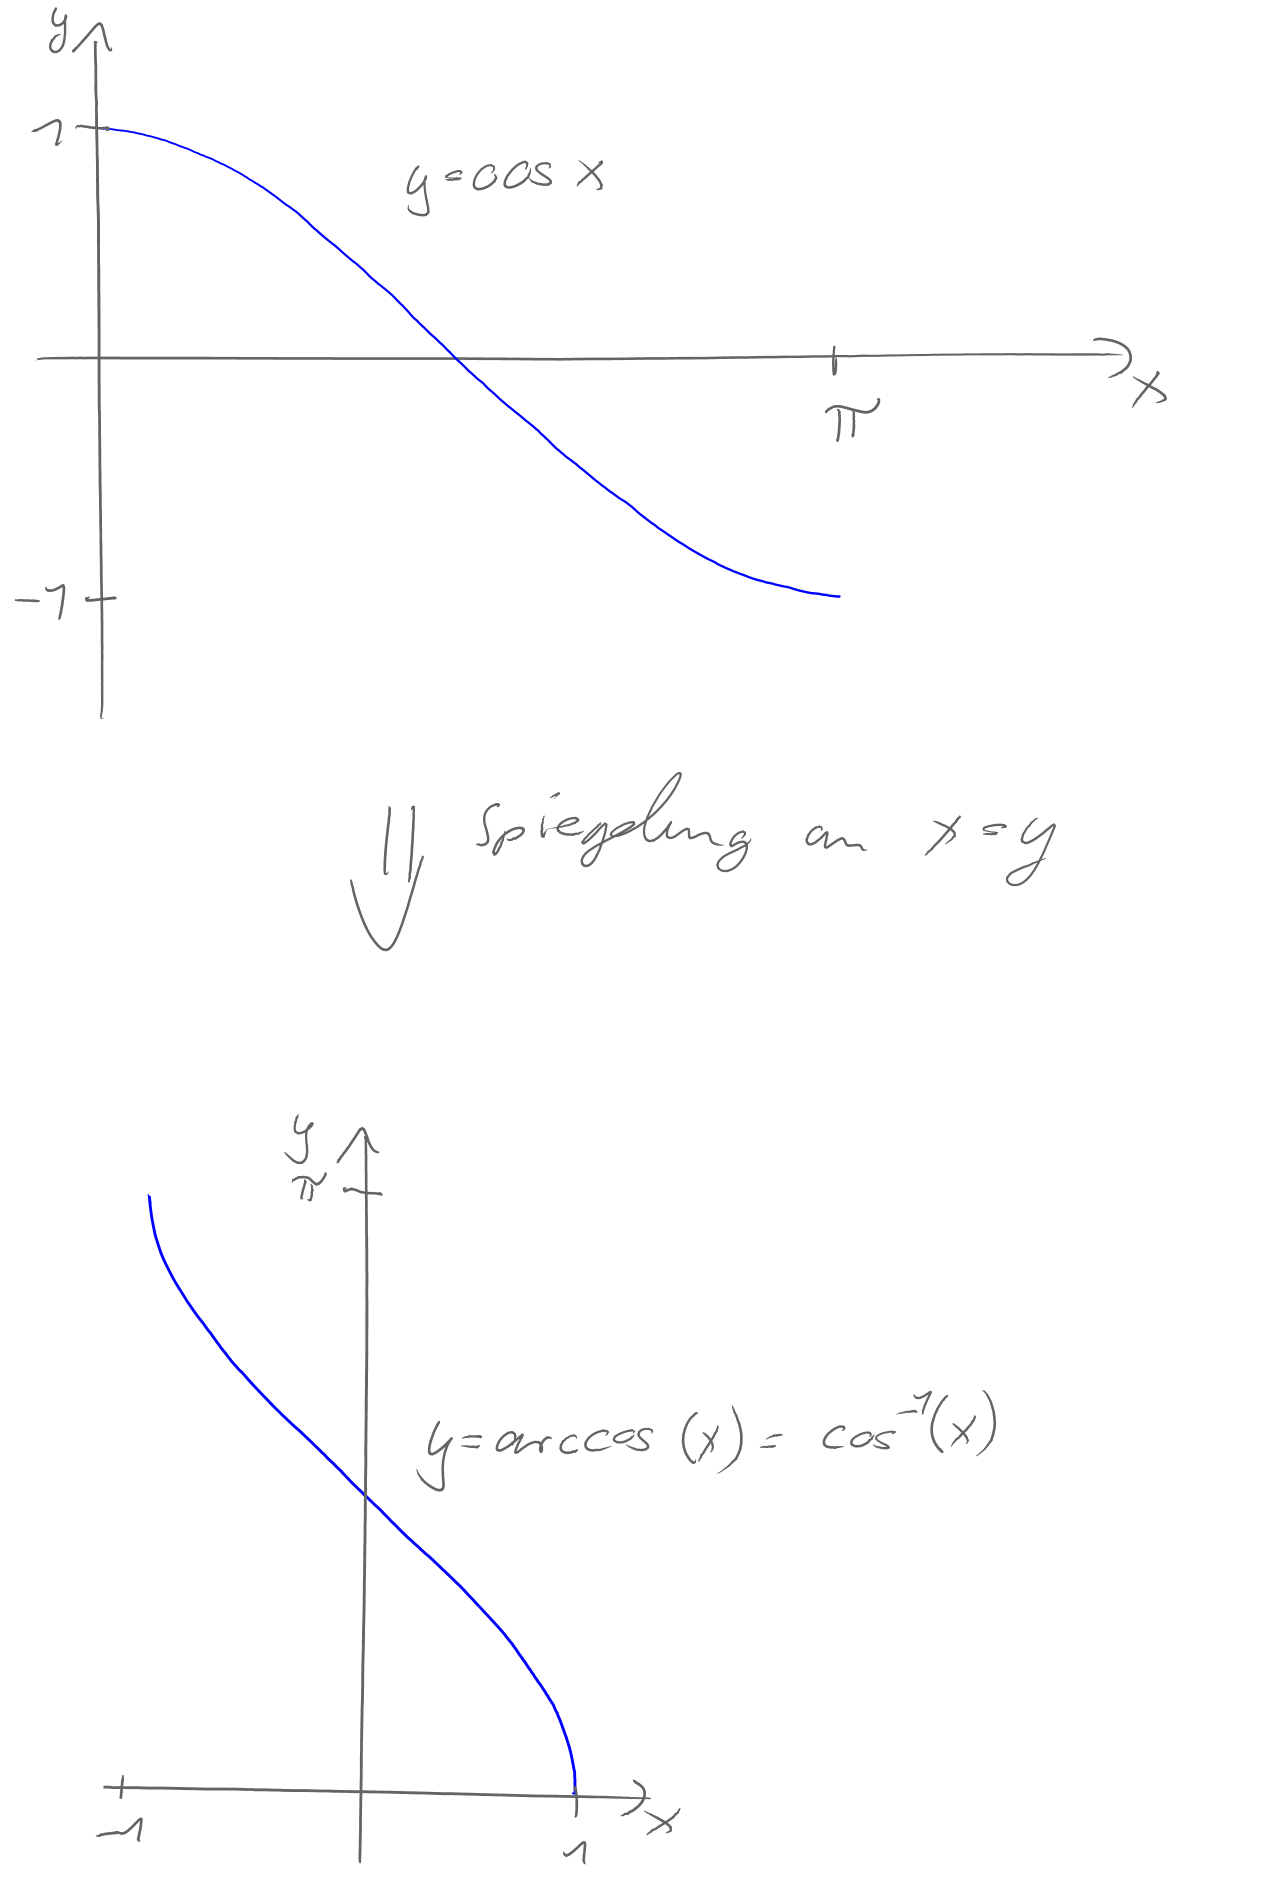 y
1
y = cos x
x
π
-1
Spiegelung an x = y
y
π
y = arccos (x) = cos⁻¹(x)
x
-1
1